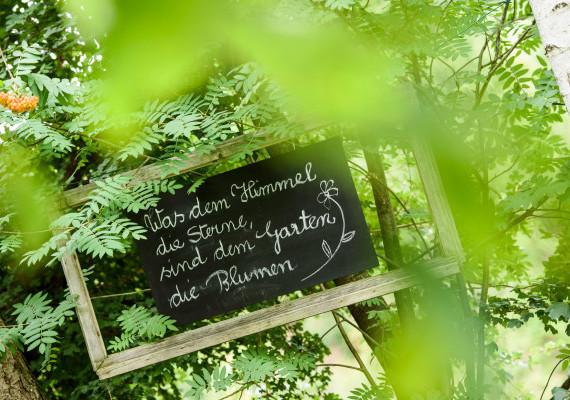 Was dem Himmel
die Sterne,
sind dem Garten
die Blumen